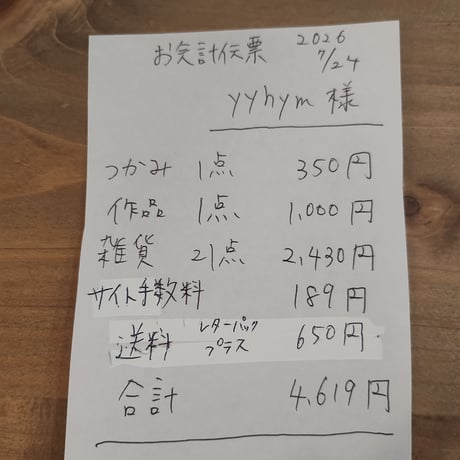 お会計伝票 2026 7/24
yyhym 様
つかみ 1点 350円
作品 1点 1,000円
雑貨 21点 2,430円
サイト手数料 189円
送料 レターパックプラス 650円.
合計 4,619円